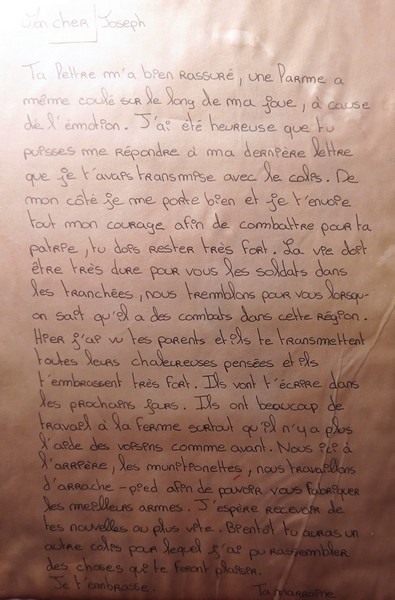 Mon cher Joseph
Ta lettre m'a bien rassuré, une larme a
même coulé sur le long de ma joue, à cause
de l'émotion. J'ai été heureuse que tu
puisses me répondre à ma dernière lettre
que je t'avais transmise avec le colis. De
mon côté je me porte bien et je t'envoie
tout mon courage afin de combattre pour ta
patrie, tu dois rester très fort. La vie doit
être très dure pour vous les soldats dans
les tranchées, nous tremblons pour vous lorsqu-
on sait qu'il a des combats dans cette région.
Hier j'ai vu tes parents et ils te transmettent
toutes leurs chaleureuses pensées et ils
t'embrassent très fort. Ils vont t'écrire dans
les prochains jours. Ils ont beaucoup de
travail à la ferme surtout qu'il n'y a plus
l'aide des voisins comme avant. Nous ici à
l'arrière, les munitionettes, nous travaillons
d'arrache-pied afin de pouvoir vous fabriquer
les meilleurs armes. J'espère recevoir de
tes nouvelles au plus vite. Bientôt tu auras un
autre colis pour lequel j'ai pu rassembler
des choses qui te feront plaisir.
Je t'embrasse. Ta marraine